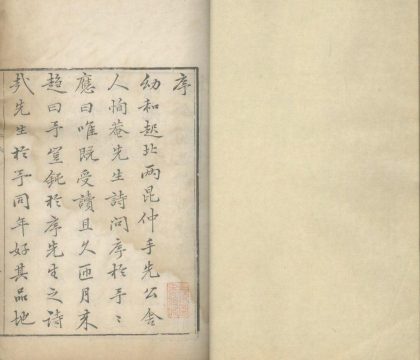 序
幼和越北两昆仲手先公舍
人恂菴先生詩問序於予〻
應曰唯既受讀且久匝月来
趨曰予室鈍於序先生之詩
哉先生於予同年好其品地